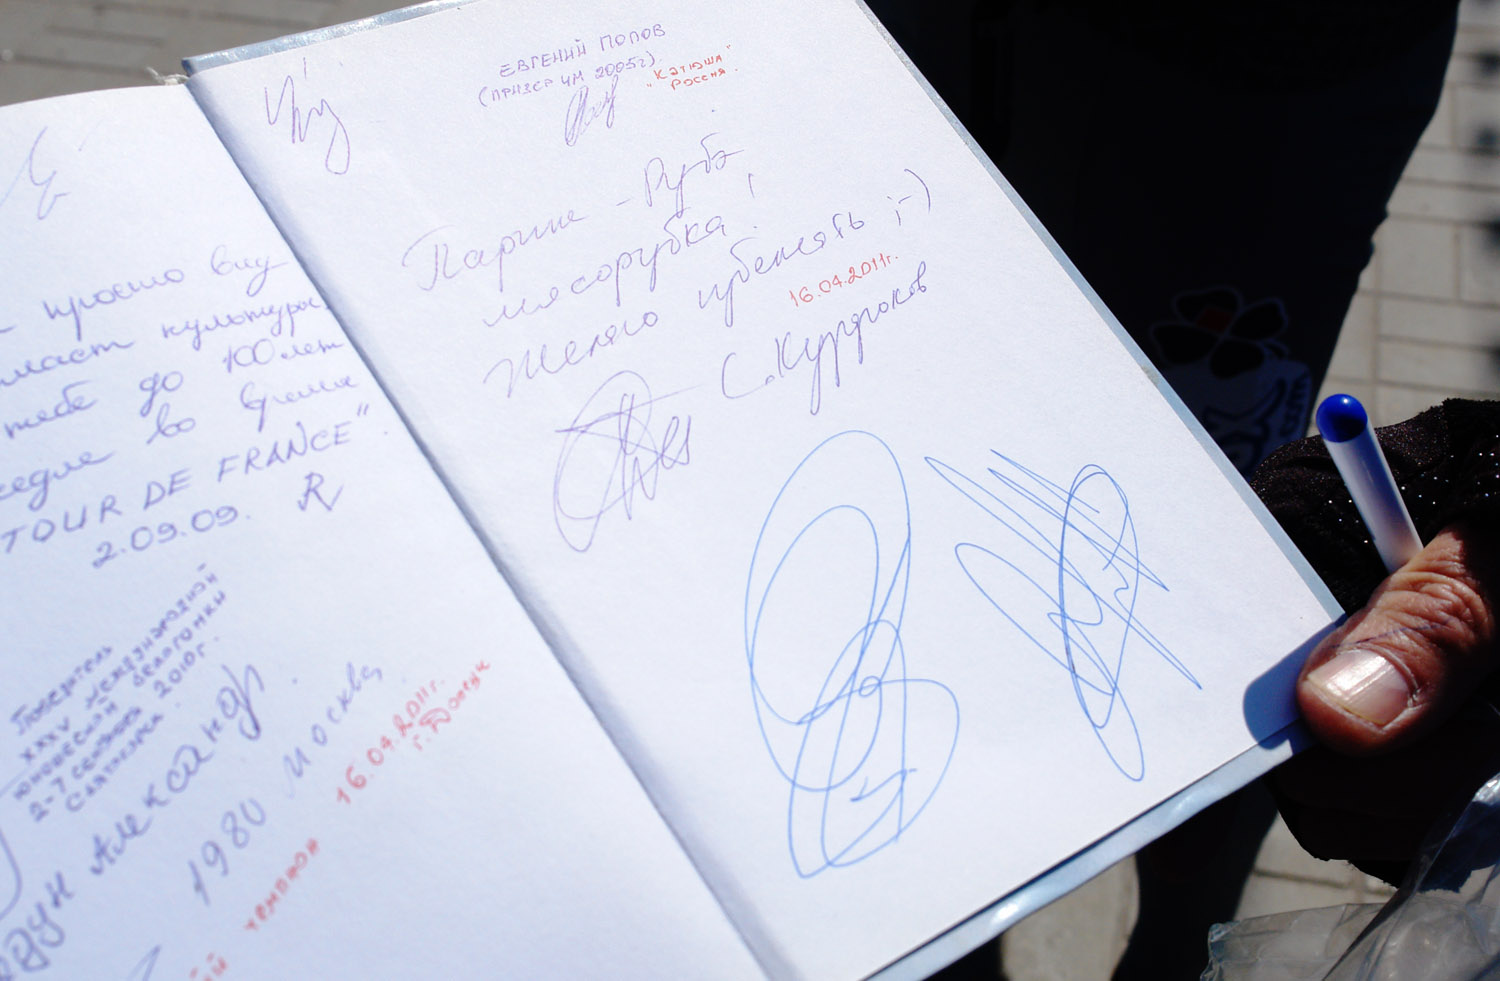 просто вид
культуры.
тебе до 100 лет
седле во время
TOUR DE FRANCE".
2.09.09.
Победитель
XXXV международной
юношеской велогонки
2-7 сентября 2010г.
Александр.
1980 Москва.
16.04.2011г.
г. Донецк
ЕВГЕНИЙ ПОПОВ
(ПРИЗЕР ЧМ 2005г)
"Катюша"
Россия.
Париж - Рубэ
мясорубка!
Желаю избежать ;-)
16.04.2011г.
С. Курдюков